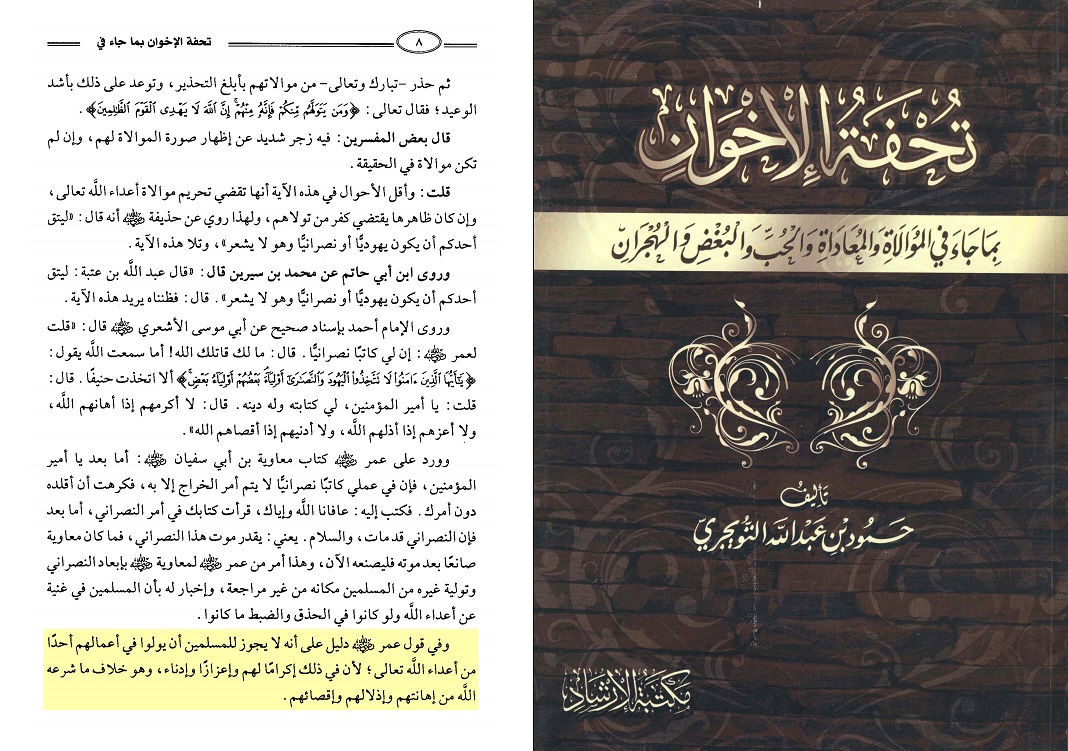 تحفة الإخوان بما جاء في
٨
ثم حذر -تبارك وتعالى- من موالاتهم بأبلغ التحذير، وتوعد على ذلك بأشد
الوعيد؛ فقال تعالى: ﴿وَمَن يَتَوَلَّهُم مِّنكُمْ فَإِنَّهُۥ مِنْهُمْ إِنَّ ٱللَّهَ لَا يَهْدِى ٱلْقَوْمَ ٱلظَّٰلِمِينَ﴾.
قال بعض المفسرين: فيه زجر شديد عن إظهار صورة الموالاة لهم، وإن لم
تكن موالاة في الحقيقة.
قلت: وأقل الأحوال في هذه الآية أنها تقضي تحريم موالاة أعداء اللَّه تعالى،
وإن كان ظاهرها يقتضي كفر من تولاهم، ولهذا روي عن حذيفة ﵁ أنه قال: «ليتق
أحدكم أن يكون يهوديًّا أو نصرانيًّا وهو لا يشعر»، وتلا هذه الآية.
وروى ابن أبي حاتم عن محمد بن سيرين قال: «قال عبد اللَّه بن عتبة: ليتق
أحدكم أن يكون يهوديًّا أو نصرانيًّا وهو لا يشعر». قال: فظنناه يريد هذه الآية.
وروى الإمام أحمد بإسناد صحيح عن أبي موسى الأشعري ﵁ قال: «قلت
لعمر ﵁: إن لي كاتبًا نصرانيًّا. قال: ما لك قاتلك الله! أما سمعت اللَّه يقول:
﴿يَٰٓأَيُّهَا ٱلَّذِينَ ءَامَنُوا۟ لَا تَتَّخِذُوا۟ ٱلْيَهُودَ وَٱلنَّصَٰرَىٰٓ أَوْلِيَآءَ بَعْضُهُمْ أَوْلِيَآءُ بَعْضٍ﴾ ألا اتخذت حنيفًا. قال:
قلت: يا أمير المؤمنين، لي كتابته وله دينه. قال: لا أكرمهم إذا أهانهم اللَّه،
ولا أعزهم إذا أذلهم اللَّه، ولا أدنيهم إذا أقصاهم الله».
وورد على عمر ﵁ كتاب معاوية بن أبي سفيان ﵁: أما بعد يا أمير
المؤمنين، فإن في عملي كاتبًا نصرانيًّا لا يتم أمر الخراج إلا به، فكرهت أن أقلده
دون أمرك. فكتب إليه: عافانا اللَّه وإياك، قرأت كتابك في أمر النصراني، أما بعد
فإن النصراني قد مات، والسلام. يعني: يقدر موت هذا النصراني، فما كان معاوية
صانعًا بعد موته فليصنعه الآن، وهذا أمر من عمر ﵁ لمعاوية ﵁ بإبعاد النصراني
وتولية غيره من المسلمين مكانه من غير مراجعة، وإخبار له بأن المسلمين في غنية
عن أعداء اللَّه ولو كانوا في الحذق والضبط ما كانوا.
وفي قول عمر ﵁ دليل على أنه لا يجوز للمسلمين أن يولوا في أعمالهم أحدًا
من أعداء اللَّه تعالى؛ لأن في ذلك إكرامًا لهم وإعزازًا وإدناء، وهو خلاف ما شرعه
اللَّه من إهانتهم وإذلالهم وإقصائهم.
تُحْفَةُ الإِخْوَانِ
بِمَا جَاءَ فِي المُوَالَاةِ وَالمُعَادَاةِ وَالحُبِّ وَالْبُغْضِ وَالْهُجْرَانِ
تأليف
حمود بن عبد الله التويجري
مكتبة الإرشاد